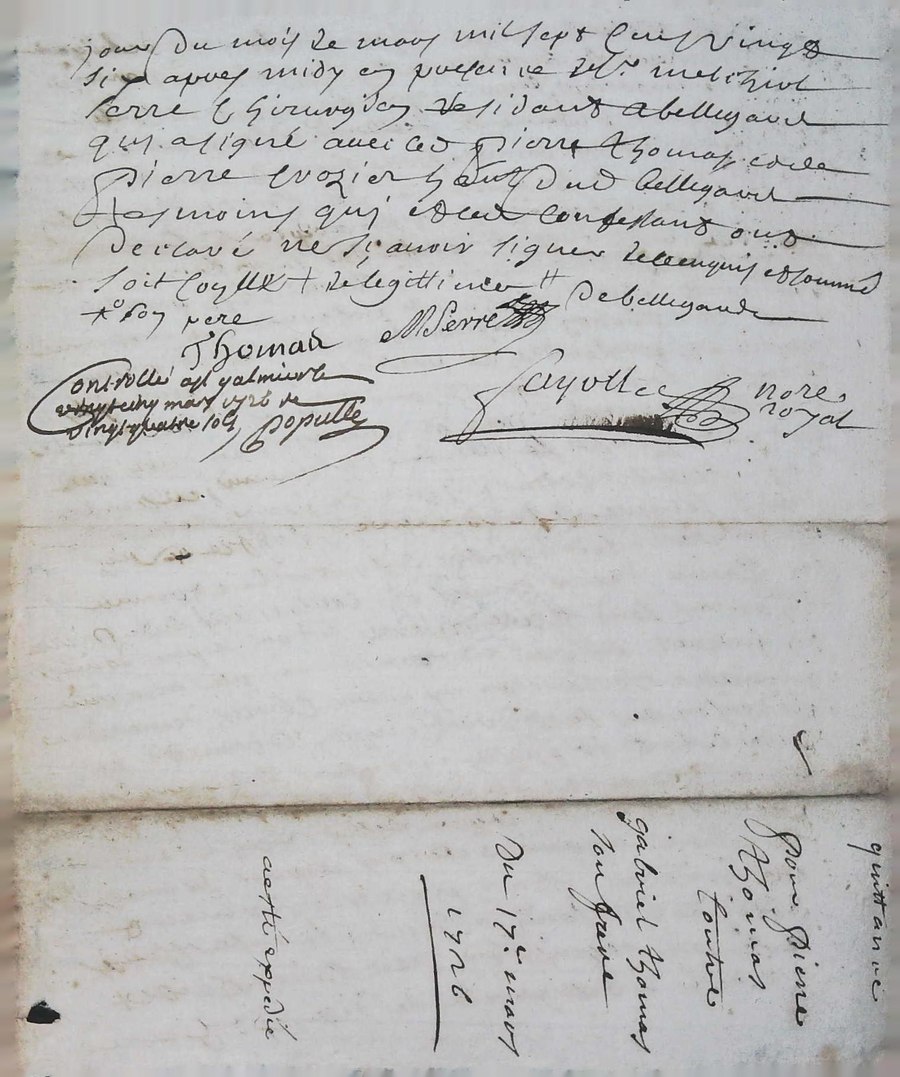 jour du mois de mars mil sept cens vingt
six apres midy en presence de Sr. melchiol
serre Chirurgien residant a bellegarde
qui a signé avec led pierre thomas
pierre crozier dud bellegarde
tesmoins qui et led confessant ont
declaré ne sçavoir signer de ce enquis et sommé
soit + de legitime de bellegarde
pere
Thomas
MSerre
Controllé a st galmier le
vingt cinq mars 1726 re
vingt quatre sols
Populle
Jayollet
nore
royal
quittance
pour pierre
thomas
contre
gabriel thomas
son frere
Du 17e. mars
1726
a esté expedié